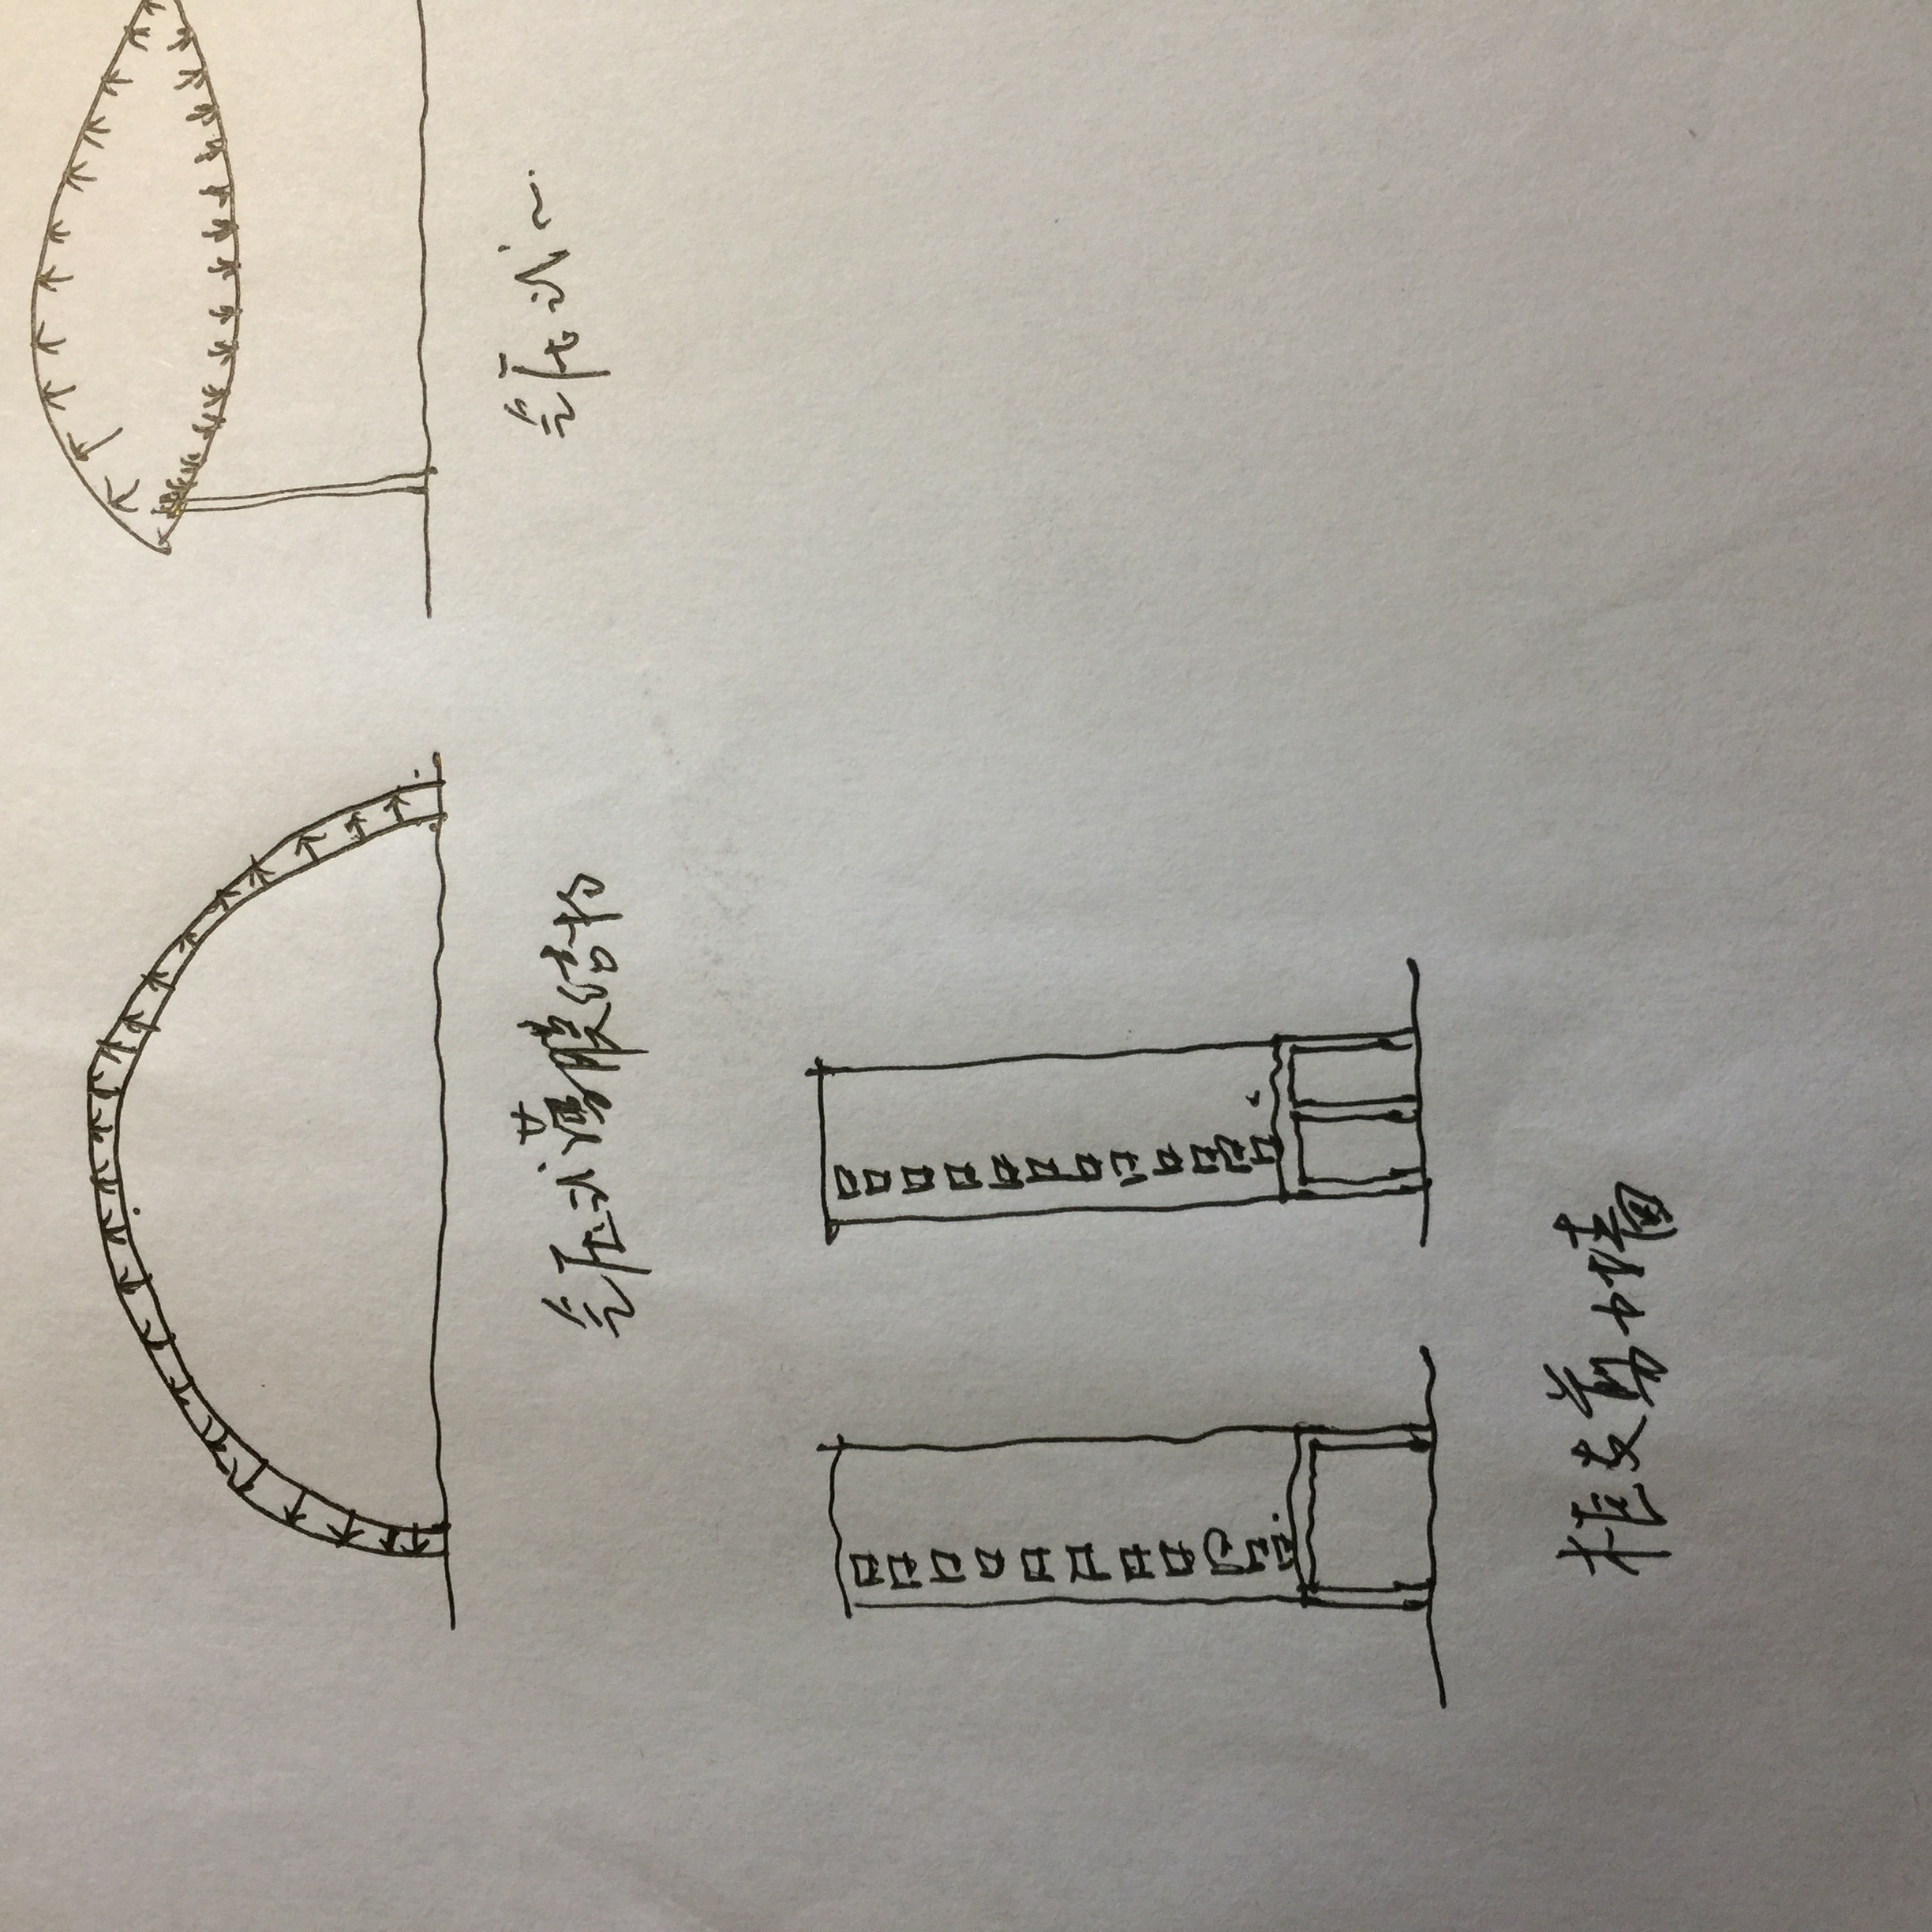 气压式薄膜结构
气压式~.
框支剪力墙